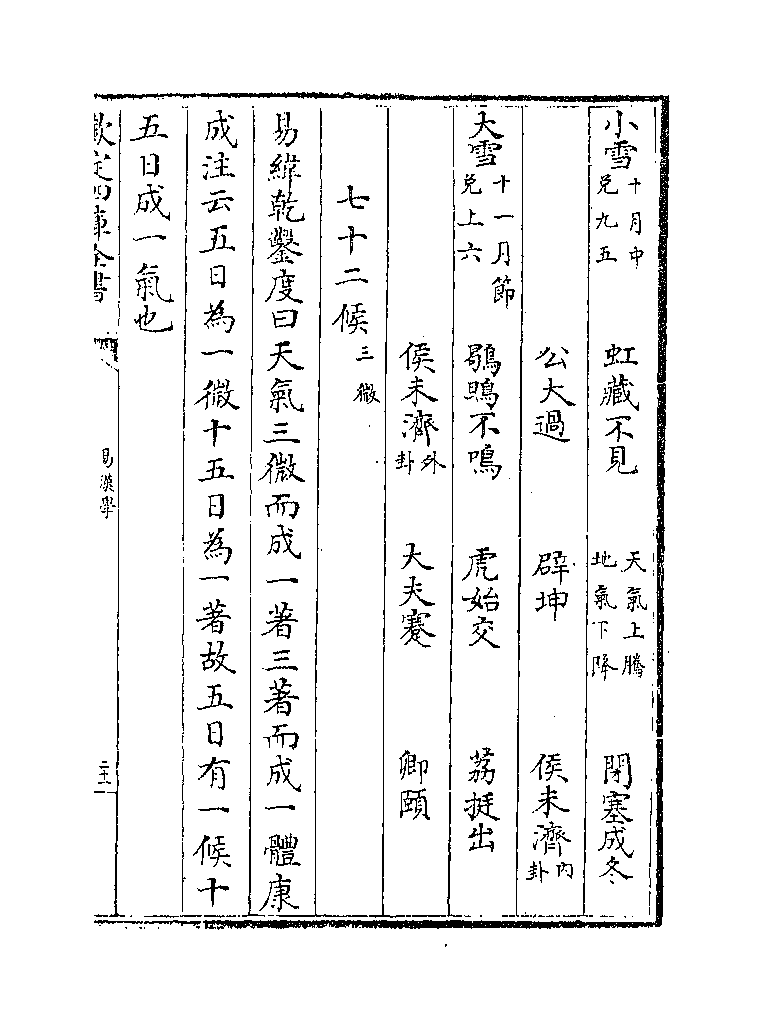 小雪十月中兑九五 虹藏不見 天氣上騰地氣下降 閉塞成冬
公大過 辟坤 侯未濟内卦
大雪十一月節兑上六 鶡鴠不鳴 虎始交 荔挺出
侯未濟外卦 大夫蹇 卿頤
七十二候三微
易緯乾鑿度曰天氣三微而成一著三著而成一體康
成注云五日為一微十五日為一著故五日有一候十
五日成一氣也
欽定四庫全書 易漢學